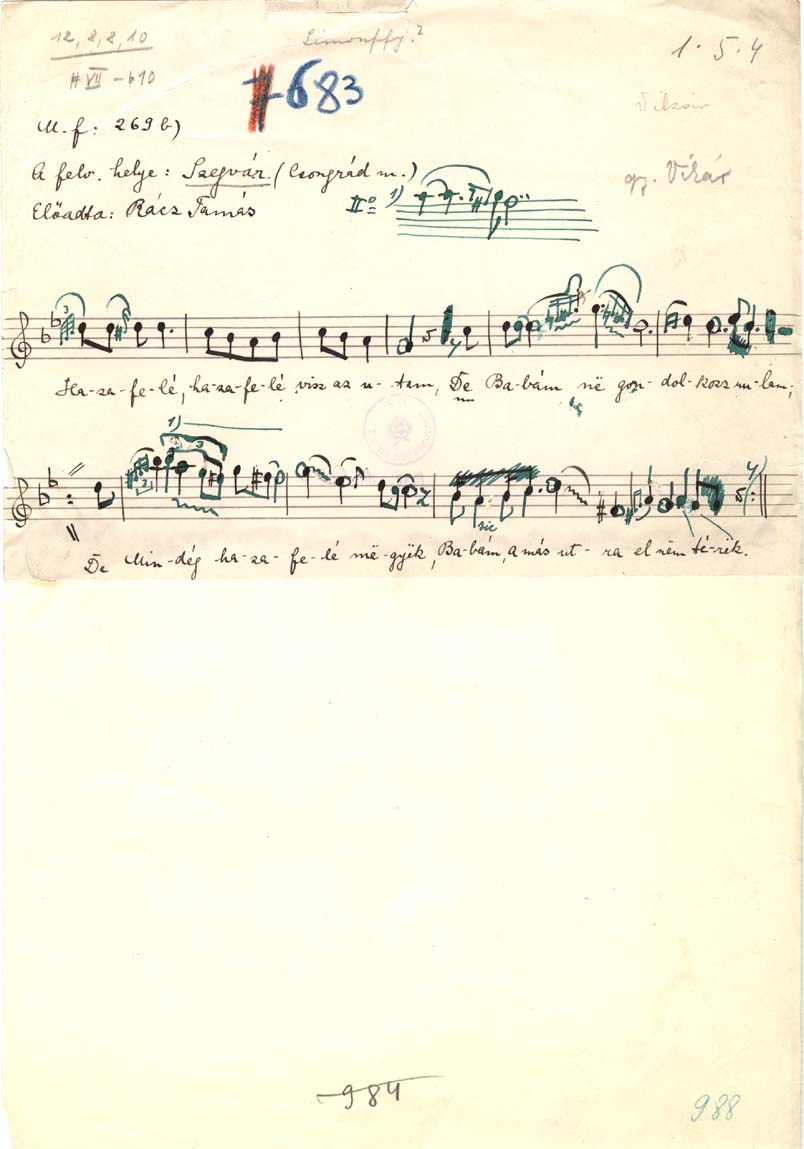 12, 8, 8, 10
Simonffy?
1. 5. 4
# VII - b10
683
Vikár
M. f: 269 b)
A felv. helye: Szegvár (Csongrád m.)
gy. Vikár
Előadta: Rácz Tamás
IIº 1)
3
Ha-za-fe-lé, ha-za-fe-lé visz az u-tam, De Ba-bám në gon-dol-kozz ru-lam;
1)
3
sic
De Min-dég ha-za-fe-lé më-gyëk, Ba-bám, a más ut-ra el nëm té-rëk.
984
988